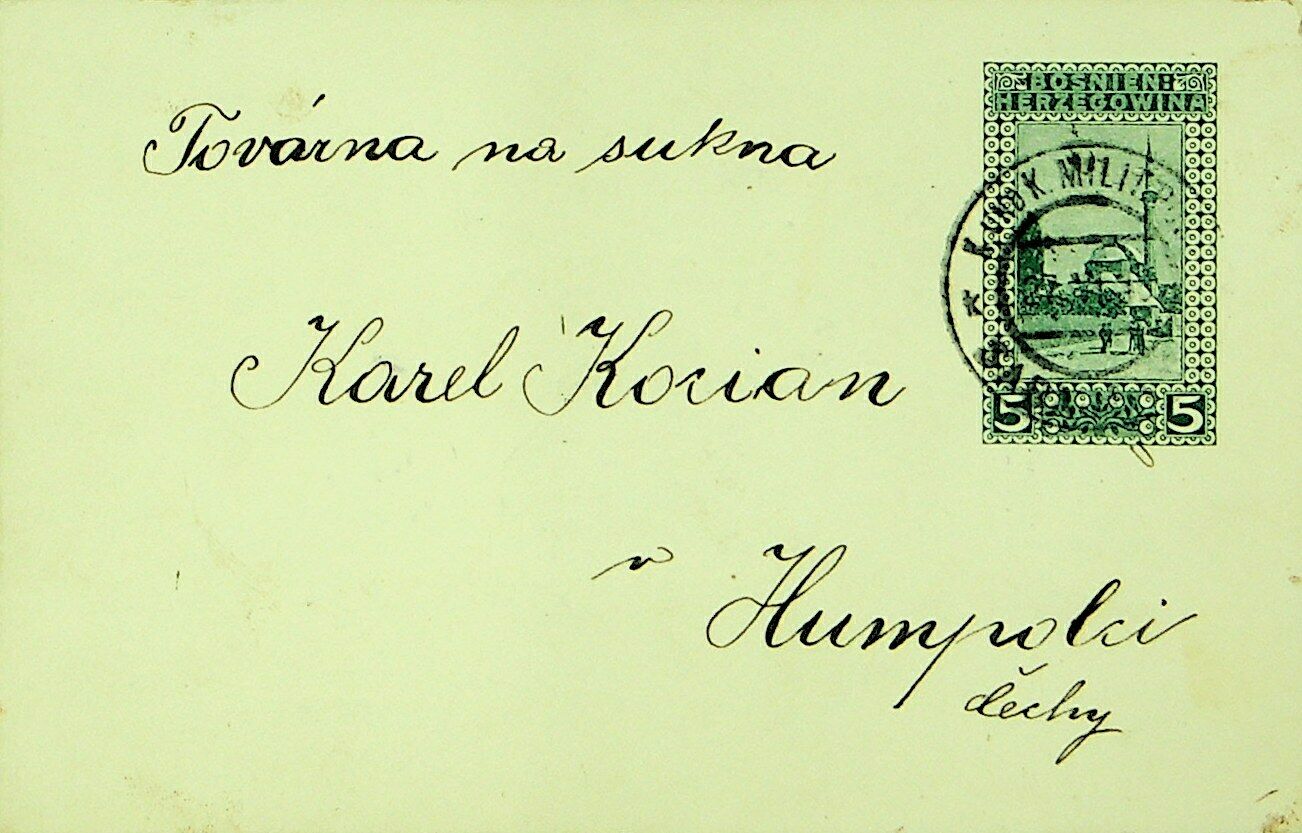 BOSNIEN-
HERZEGOWINA
Továrna na sukna
K. UND K. MILIT.
Karel Kocian
5 5
v Humpolci
Čechy